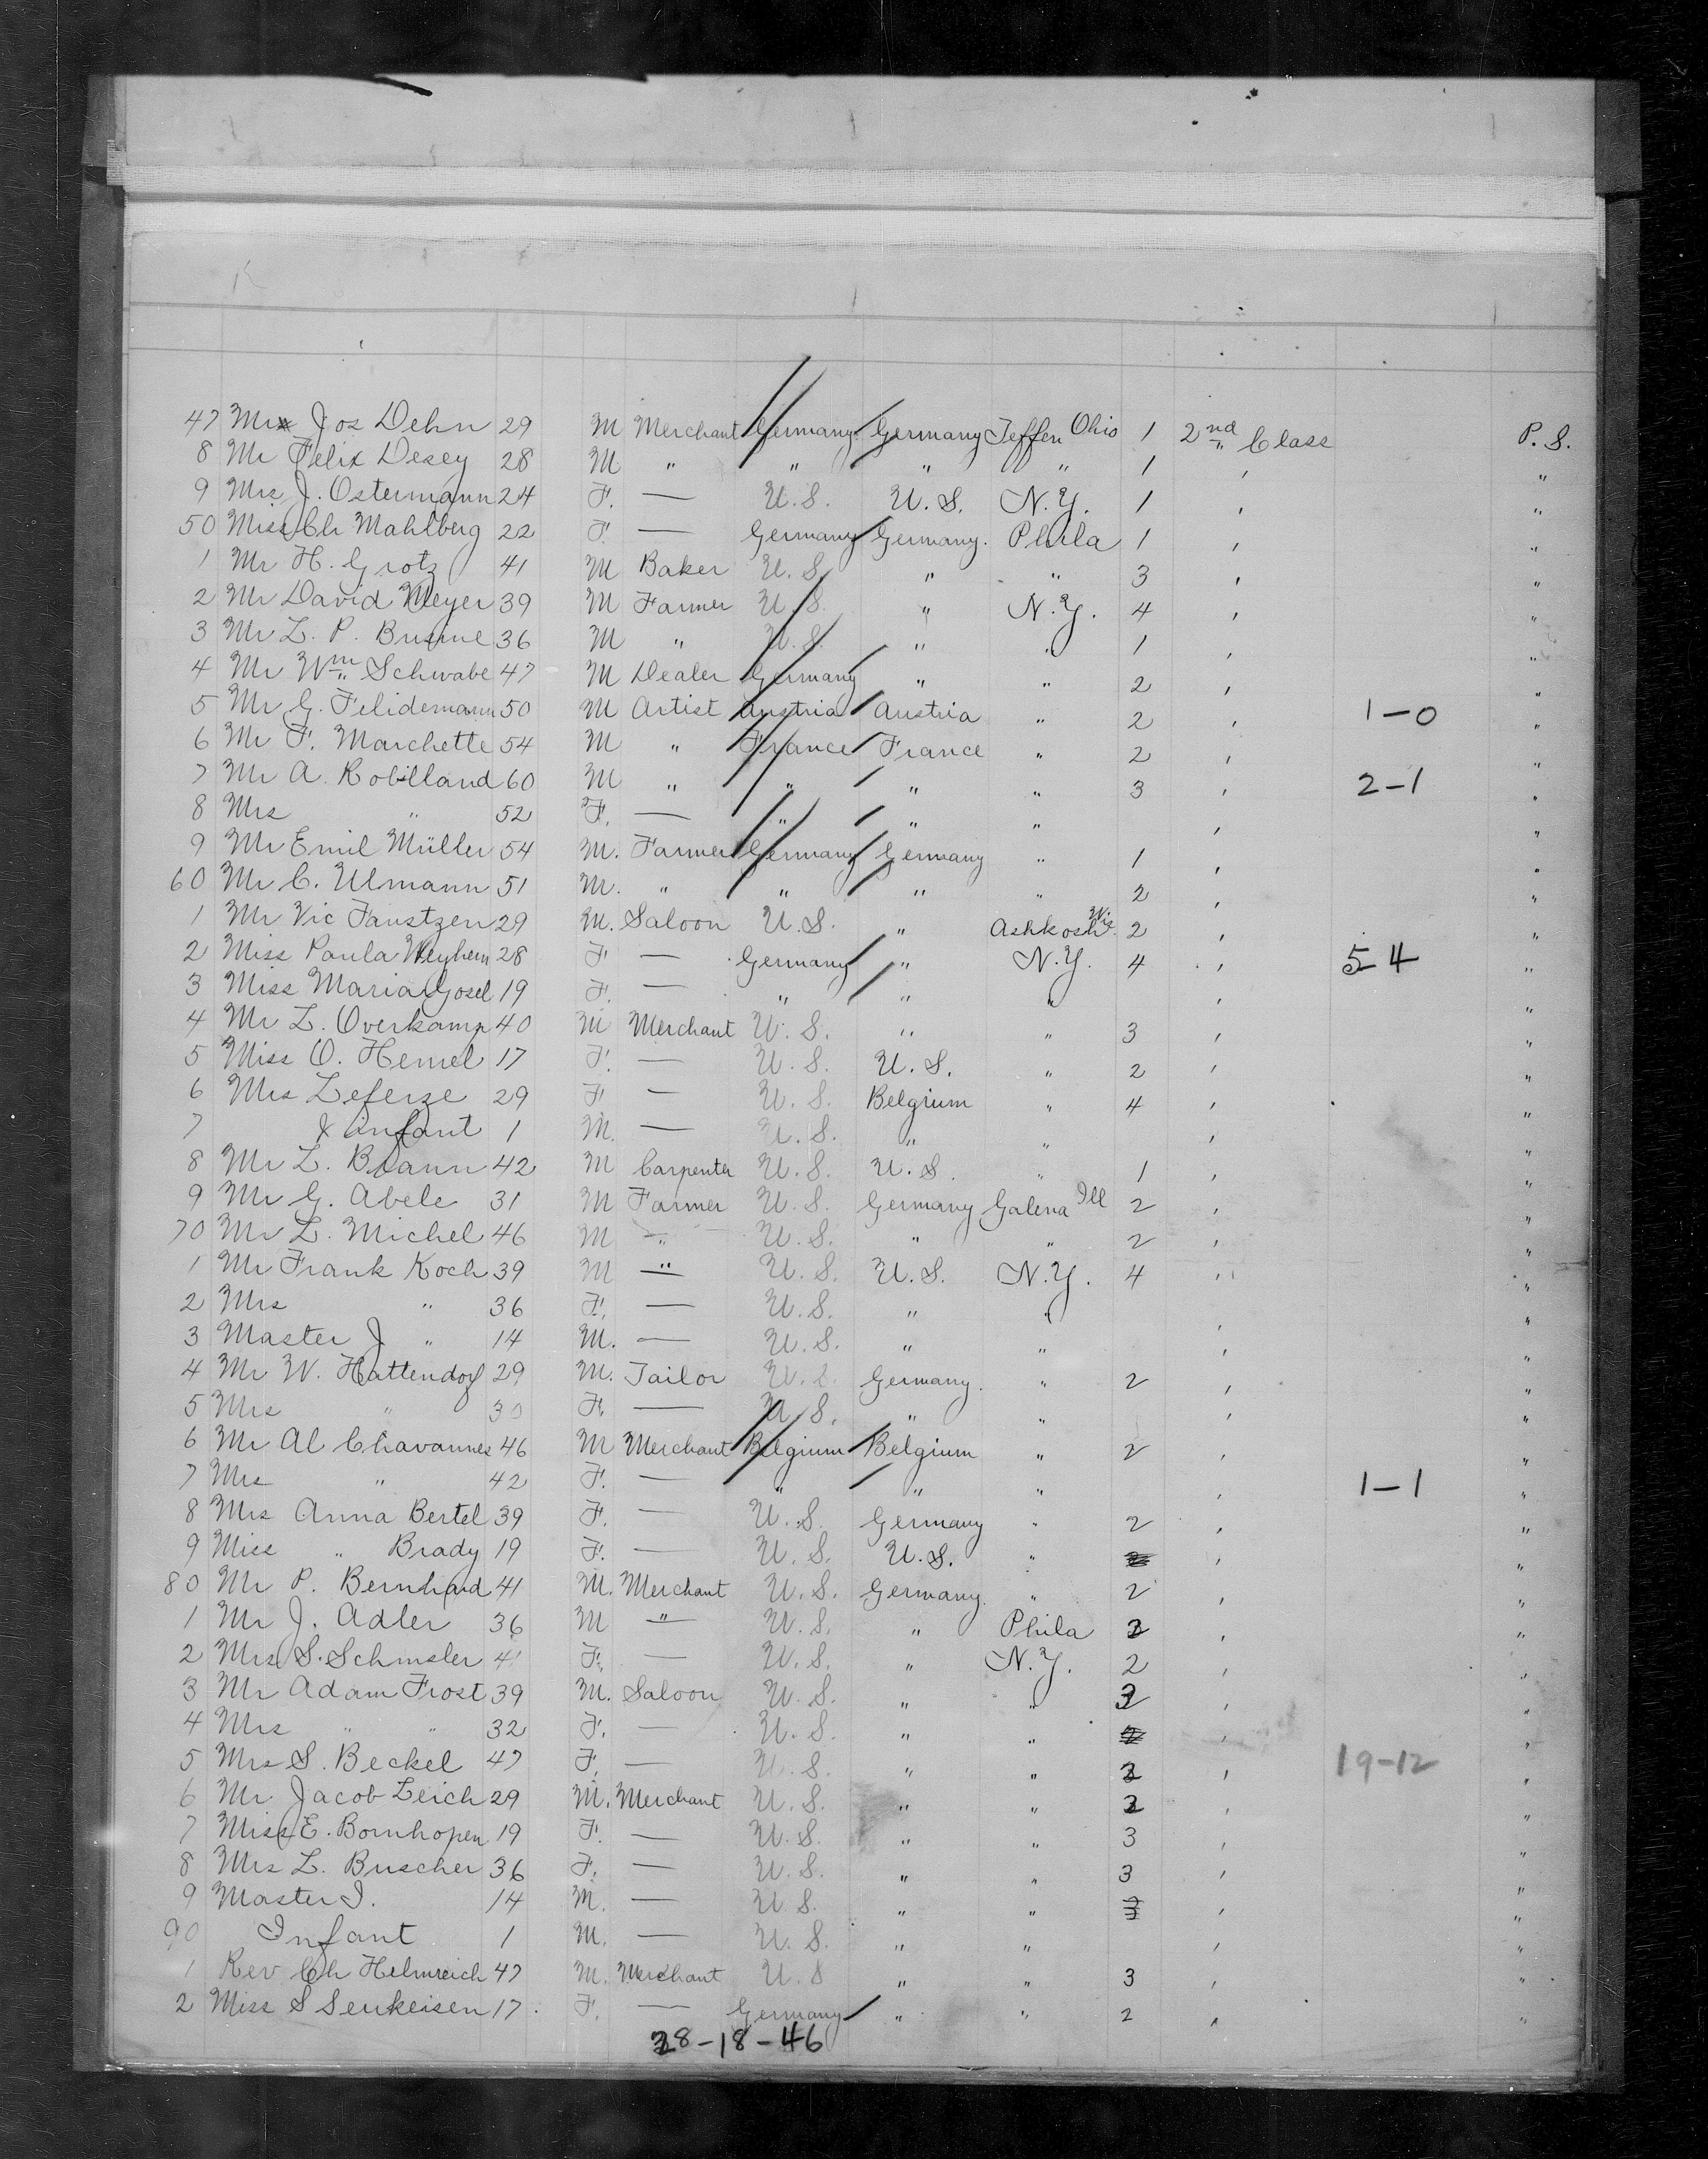 47 Mr Jos Dehn 29 M Merchant Germany Germany Teffen Ohio 1 2nd Class P. S.
8 Mr Felix Desey 28 M " " " " 1 , "
9 Mrs J. Ostermann 24 F. — U.S. U.S. N.Y. 1 , "
50 Miss Ch Mahlberg 22 F. — Germany Germany. Phila 1 , "
1 Mr H. Grotz 41 M Baker U.S. " " 3 , "
2 Mr David Meyer 39 M Farmer U.S. " N.Y. 4 , "
3 Mr L. P. Brume 36 M " U.S. " " 1 , "
4 Mr Wm Schwabe 47 M Dealer Germany " " 2 , "
5 Mr G. Felidemann 50 M Artist Austria Austria " 2 , 1-0 "
6 Mr F. Marchette 54 M " France France " 2 , "
7 Mr A. Robilland 60 M " " " " 3 , 2-1 "
8 Mrs " 52 F. — " " " , "
9 Mr Emil Müller 54 M. Farmer Germany Germany " 1 , "
60 Mr C. Ulmann 51 M. " " " " 2 , "
1 Mr Vic Faustzen 29 M. Saloon U.S. " Ashkosh Wis. 2 , "
2 Miss Paula Weyhem 28 F — Germany " N.Y. 4 , 5-4 "
3 Miss Maria Gosel 19 F. — " " " , "
4 Mr L. Overkamp 40 M Merchant U.S. " " 3 , "
5 Miss O. Hemel 17 F. — U.S. U.S. " 2 , "
6 Mrs Leferse 29 F — U.S. Belgium " 4 , "
7 & infant 1 M. — U.S. " " , "
8 Mr L. Blann 42 M Carpenter U.S. U.S. " 1 , "
9 Mr G. Abele 31 M Farmer U.S. Germany Galena Ill 2 , "
70 Mr L. Michel 46 M " U.S. " " 2 , "
1 Mr Frank Koch 39 M " U.S. U.S. N.Y. 4 , "
2 Mrs " 36 F. — U.S. " " "
3 Master J " 14 M. — U.S. " " , "
4 Mr W. Hattendorf 29 M. Tailor U.S. Germany. " 2 , "
5 Mrs " F. — U.S. " " , "
6 Mr Al Chavannes 46 M Merchant Belgium Belgium " 2 , "
7 Mrs " 42 F. — " " " , 1-1 "
8 Mrs Anna Bertel 39 F. — U.S. Germany " 2 , "
9 Miss " Brady 19 F. — U.S. U.S. " 2 , "
80 Mr P. Bernhard 41 M. Merchant U.S. Germany. " 2 , "
1 Mr J. Adler 36 M " U.S. " Phila 2 , "
2 Mrs S. Schmsler F. — U.S. " N.Y. 2 , "
3 Mr Adam Frost 39 M. Saloon U.S. " " 2 , "
4 Mrs " " 32 F. — U.S. " " 2 , "
5 Mrs S. Beckel 47 F. — U.S. " " 2 , 19-12 "
6 Mr Jacob Leich 29 M. Merchant U.S. " " 2 , "
7 Miss E. Bornhopen 19 F. — U.S. " " 3 , "
8 Mrs L. Buscher 36 F. — U.S. " " 3 , "
9 Master I. 14 M. — U.S. " " 3 , "
90 Infant 1 M. — U.S. " " , "
1 Rev Ch Helmreich 47 M. Merchant U.S " " 3 , "
2 Miss S Senkeisen 17 F. — Germany " " 2 , "
28-18-46